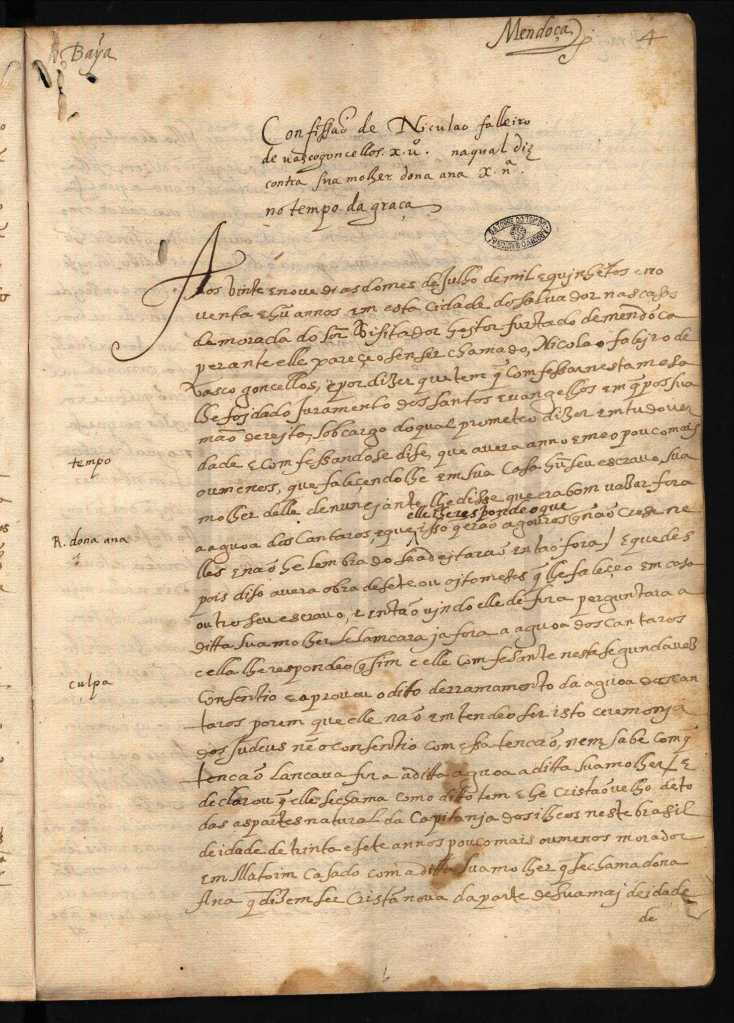 Baýa
Mendoça
4
Confissaõ de Niculao falleiro
de uascogoncellos. x. uº. naqual diz
contra sua molher dona ana x. nª.
no tempo da graça
Aos Vinte e noue dias do mes de Julho de mil e quinhẽtos e no
uenta e hũ annos em esta Cidade do saluador nas casas
de morada do sõr Visitador heitor furtado de mendoça
perante elle pareçeo sem ser chamado, Nicolao faleiro de
Vasco goncellos, e por dizer que tem q̃ comfessar nesta mesa
lhe foj dado Juramento dos santos euangelhos em q̃ pos sua
mão dereita, sob cargo do qual prometeo dizer em tudo uer
tempo
dade e Comfessandose dise, que auera anno e meo pouco mais
ou menos, que faleçendolhe em sua casa hũ seu escrauo, sua
molher delle denunçiante lhe disse que era bom uazar fora
elle lhe respondeo que
R. dona ana
a agoa dos Cantaros, e que isso erão agouros q̃ não cresse ne
lles e não he lembrado se a deitarão entaõ fora / e que des
pois diso auera obra de sete ou oito meses q̃ lhe faleçeo em casa
outro seu escrauo, e entaõ uindo elle de fora perguntara a
ditta sua molher se lançara ja fora a agoa dos cantaros
e ella lhe respondeo q̃ sim e elle comfessante nesta segunda uez
culpa
Consentio e aprouou o dito derramamento da agoa dos can
taros porem que elle naõ entendeo ser isto ceremonja
dos Judeus nẽ o consentio com essa tencaõ, nem sabe com q̃
tencaõ lancaua fora a ditta agoa a ditta sua molher / E
declarou q̃ elle se chama como ditto tem e he cristaõ uelho de to
das as partes natural da Capitanja dos ilheos neste brasil
de idade de trinta e sete annos pouco mais ou menos morador
em Matoim casado com a ditta sua molher q̃ se chama dona
Ana q̃ dizem ser Cristã noua da parte de sua maj de idade
de